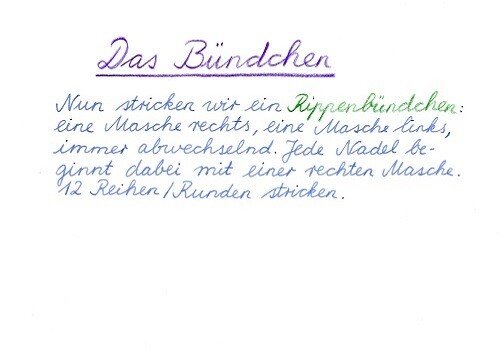 Das Bündchen
Nun stricken wir ein Rippenbündchen:
eine Masche rechts, eine Masche links,
immer abwechselnd. Jede Nadel be-
ginnt dabei mit einer rechten Masche.
12 Reihen/Runden stricken.